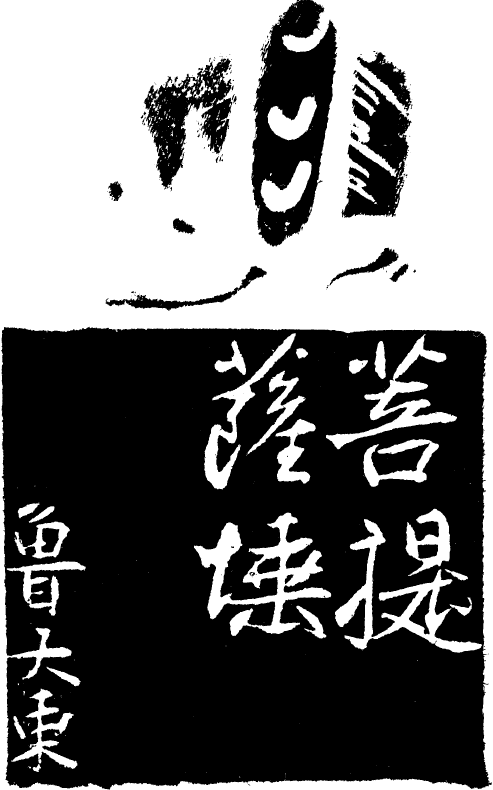 菩提
薩埵
魯大東